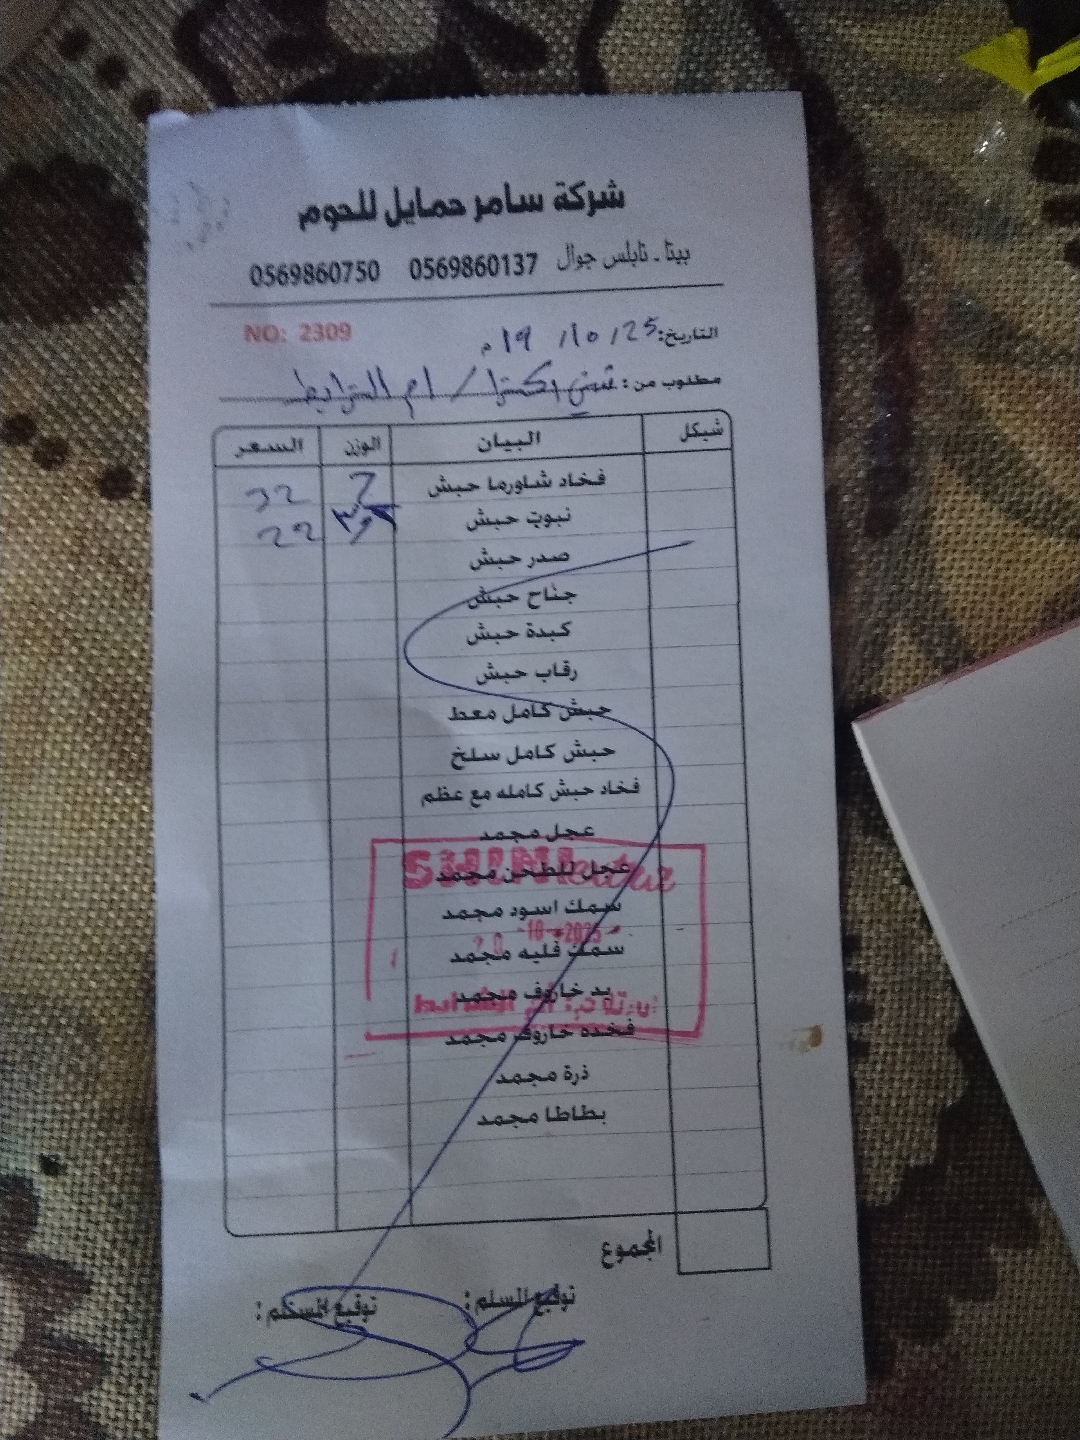 شركة سامر حمايل للحوم
بيتا - نابلس جوال 0569860137 0569860750
NO: 2309
التاريخ: 25 / 10 / 19م
مطلوب من: شيني اكسترا / ام الشرايط
شيكل البيان الوزن السعر
فخاد شاورما حبش 7 32
نبوت حبش 22
صدر حبش
جناح حبش
كبدة حبش
رقاب حبش
حبش كامل معط
حبش كامل سلخ
فخاد حبش كامله مع عظم
عجل مجمد
SHINI extra
عجل للطحن مجمد
سمك اسود مجمد
سمك فليه مجمد
يد خاروف مجمد
ام الشرايط
فخده خاروف مجمد
ذرة مجمد
بطاطا مجمد
المجموع
توقيع المسلم: توقيع المستلم: